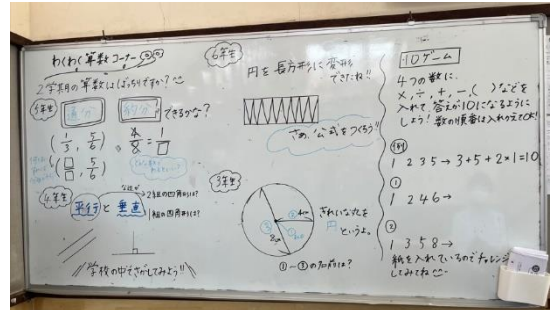 わくわく算数コーナー
2学期の算数はばっちりですか?
5年生
通分
約分
できるかな?
(1/3, 5/6)
(□/□, 5/6)
4/8 = 1/□
4年生
平行と垂直
2組の四角形は?
1組の四角形は?
学校の中でさがしてみよう!!
6年生
円を長方形に変形
できたね!!
さあ、公式をつくろう!!
3年生
きれいな丸を
円
というよ。
①〜③の名前は?
10ゲーム
4つの数に、
×,÷,+,-,( )などを
入れて、答えが10になるように
しよう!数の順番は入れかえてOK!
例
1 2 3 5→3+5+2×1=10
①
1 2 4 6→
②
1 3 5 8→
紙を入れているのでチャレンジ
してみてね